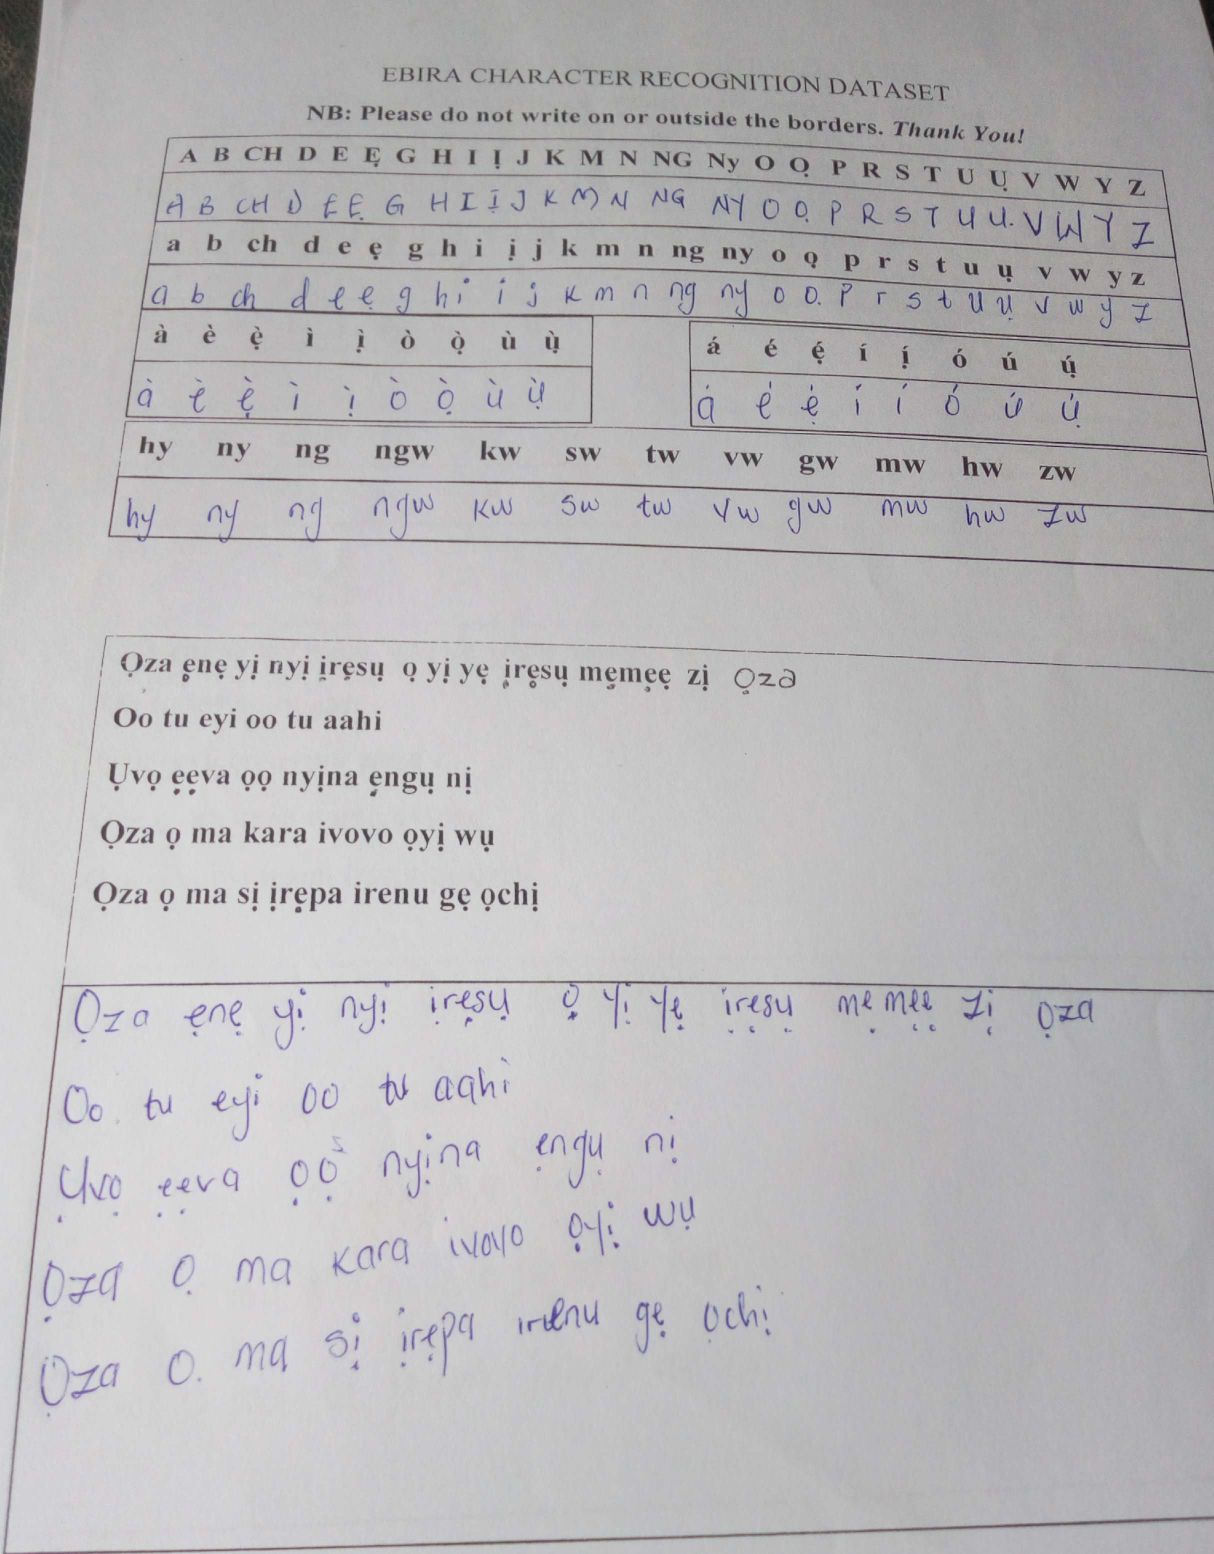 EBIRA CHARACTER RECOGNITION DATASET
NB: Please do not write on or outside the borders. Thank You!
A B CH D E Ẹ G H I Ị J K M N NG Ny O Ọ P R S T U Ụ V W Y Z
A B CH D E Ẹ G H I Ị J K M N NG NY O Ọ P R S T U Ụ V W Y Z
a b ch d e ẹ g h i ị j k m n ng ny o ọ p r s t u ụ v w y z
a b ch d e ẹ g h i i j k m n ng ny o o. p r s t u ụ v w y z
à è ẹ̀ ì ị̀ ò ọ̀ ù ụ̀
à è ẹ̀ ì ị̀ ò ọ̀ ù ụ̀
á é ẹ́ í ị́ ó ú ụ́
á é ẹ́ í í ó ú ụ́
hy ny ng ngw kw sw tw vw gw mw hw zw
hy ny ng ngw kw sw tw vw gw mw hw zw
Ọza ẹnẹ yị nyị ịrẹsụ ọ yị yẹ ịrẹsụ mẹmẹẹ zị Ọza
Oo tu eyi oo tu aahi
Ụvọ ẹẹva ọọ nyịna ẹngụ nị
Ọza ọ ma kara ivovo ọyị wụ
Ọza ọ ma sị ịrẹpa irenu gẹ ọchị
Ọza ẹnẹ yị nyị ịrẹsụ ọ yị yẹ ịrẹsụ mẹmẹẹ zị ọza
Oo. tu eyi oo tu aahi
Ụvọ ẹẹva ọọ nyịna ẹngụ nị
Ọza ọ ma kara ivovo ọyị wụ
Ọza o. ma sị ịrẹpa irenu gẹ ọchị